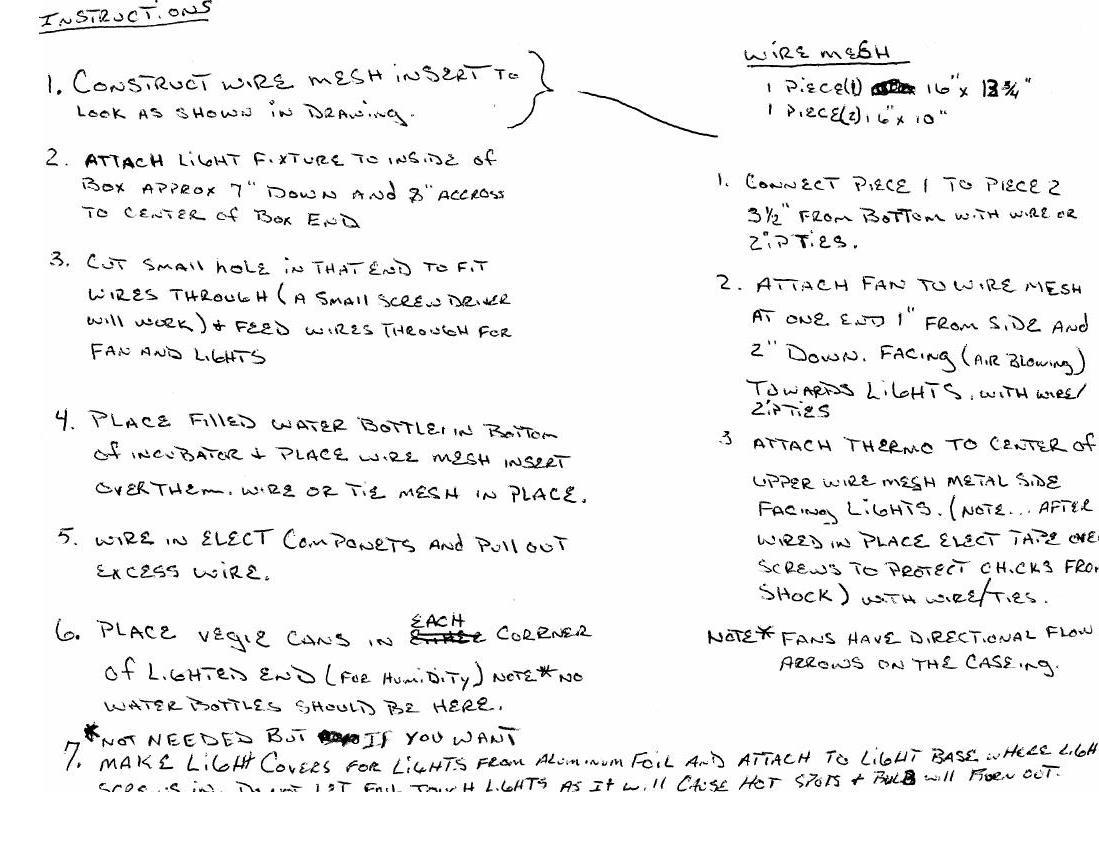 INSTRUCTIONS
1. CONSTRUCT WIRE MESH INSERT TO
LOOK AS SHOWN IN DRAWING.
2. ATTACH LIGHT FIXTURE TO INSIDE of
BOX APPROX 7" DOWN AND 8" ACCROSS
TO CENTER of BOX END
3. CUT SMALL HOLE IN THAT END TO FIT
WIRES THROUGH (A SMALL SCREWDRIVER
will WORK) + FEED WIRES THROUGH FOR
FAN AND LIGHTS
4. PLACE FILLED WATER BOTTLES IN BOTTOM
of INCUBATOR + PLACE WIRE MESH INSERT
OVER THEM. WIRE OR TIE MESH IN PLACE.
5. WIRE IN ELECT COMPONETS AND PULL OUT
EXCESS WIRE.
6. PLACE VEGIE CANS IN EACH CORRNER
of LIGHTED END (FOR HUMIDITY) NOTE* NO
WATER BOTTLES SHOULD BE HERE.
*NOT NEEDED BUT IF YOU WANT
7. MAKE LIGHT COVERS FOR LIGHTS FROM ALUMINUM FOIL AND ATTACH TO LIGHT BASE WHERE LIGH
IN. LET FOIL TOUCH LIGHTS AS IT WILL CAUSE HOT SPOTS + BULB will BURN OUT.
WIRE MESH
1 PIECE(1) 16" x 13 3/4"
1 PIECE(2) 16" x 10"
1. CONNECT PIECE 1 TO PIECE 2
3 1/2" FROM BOTTOM WITH WIRE OR
ZIP TIES.
2. ATTACH FAN TO WIRE MESH
AT ONE END 1" FROM SIDE AND
2" DOWN. FACING (AIR BLOWING)
TOWARDS LIGHTS. WITH WIRE/
ZIPTIES
3 ATTACH THERMO TO CENTER of
UPPER WIRE MESH METAL SIDE
FACING LIGHTS. (NOTE... AFTER
WIRED IN PLACE ELECT TAPE OVE
SCREWS TO PROTECT CHICKS FROM
SHOCK) WITH WIRE/TIES.
NOTE* FANS HAVE DIRECTIONAL FLOW
ARROWS ON THE CASEING.